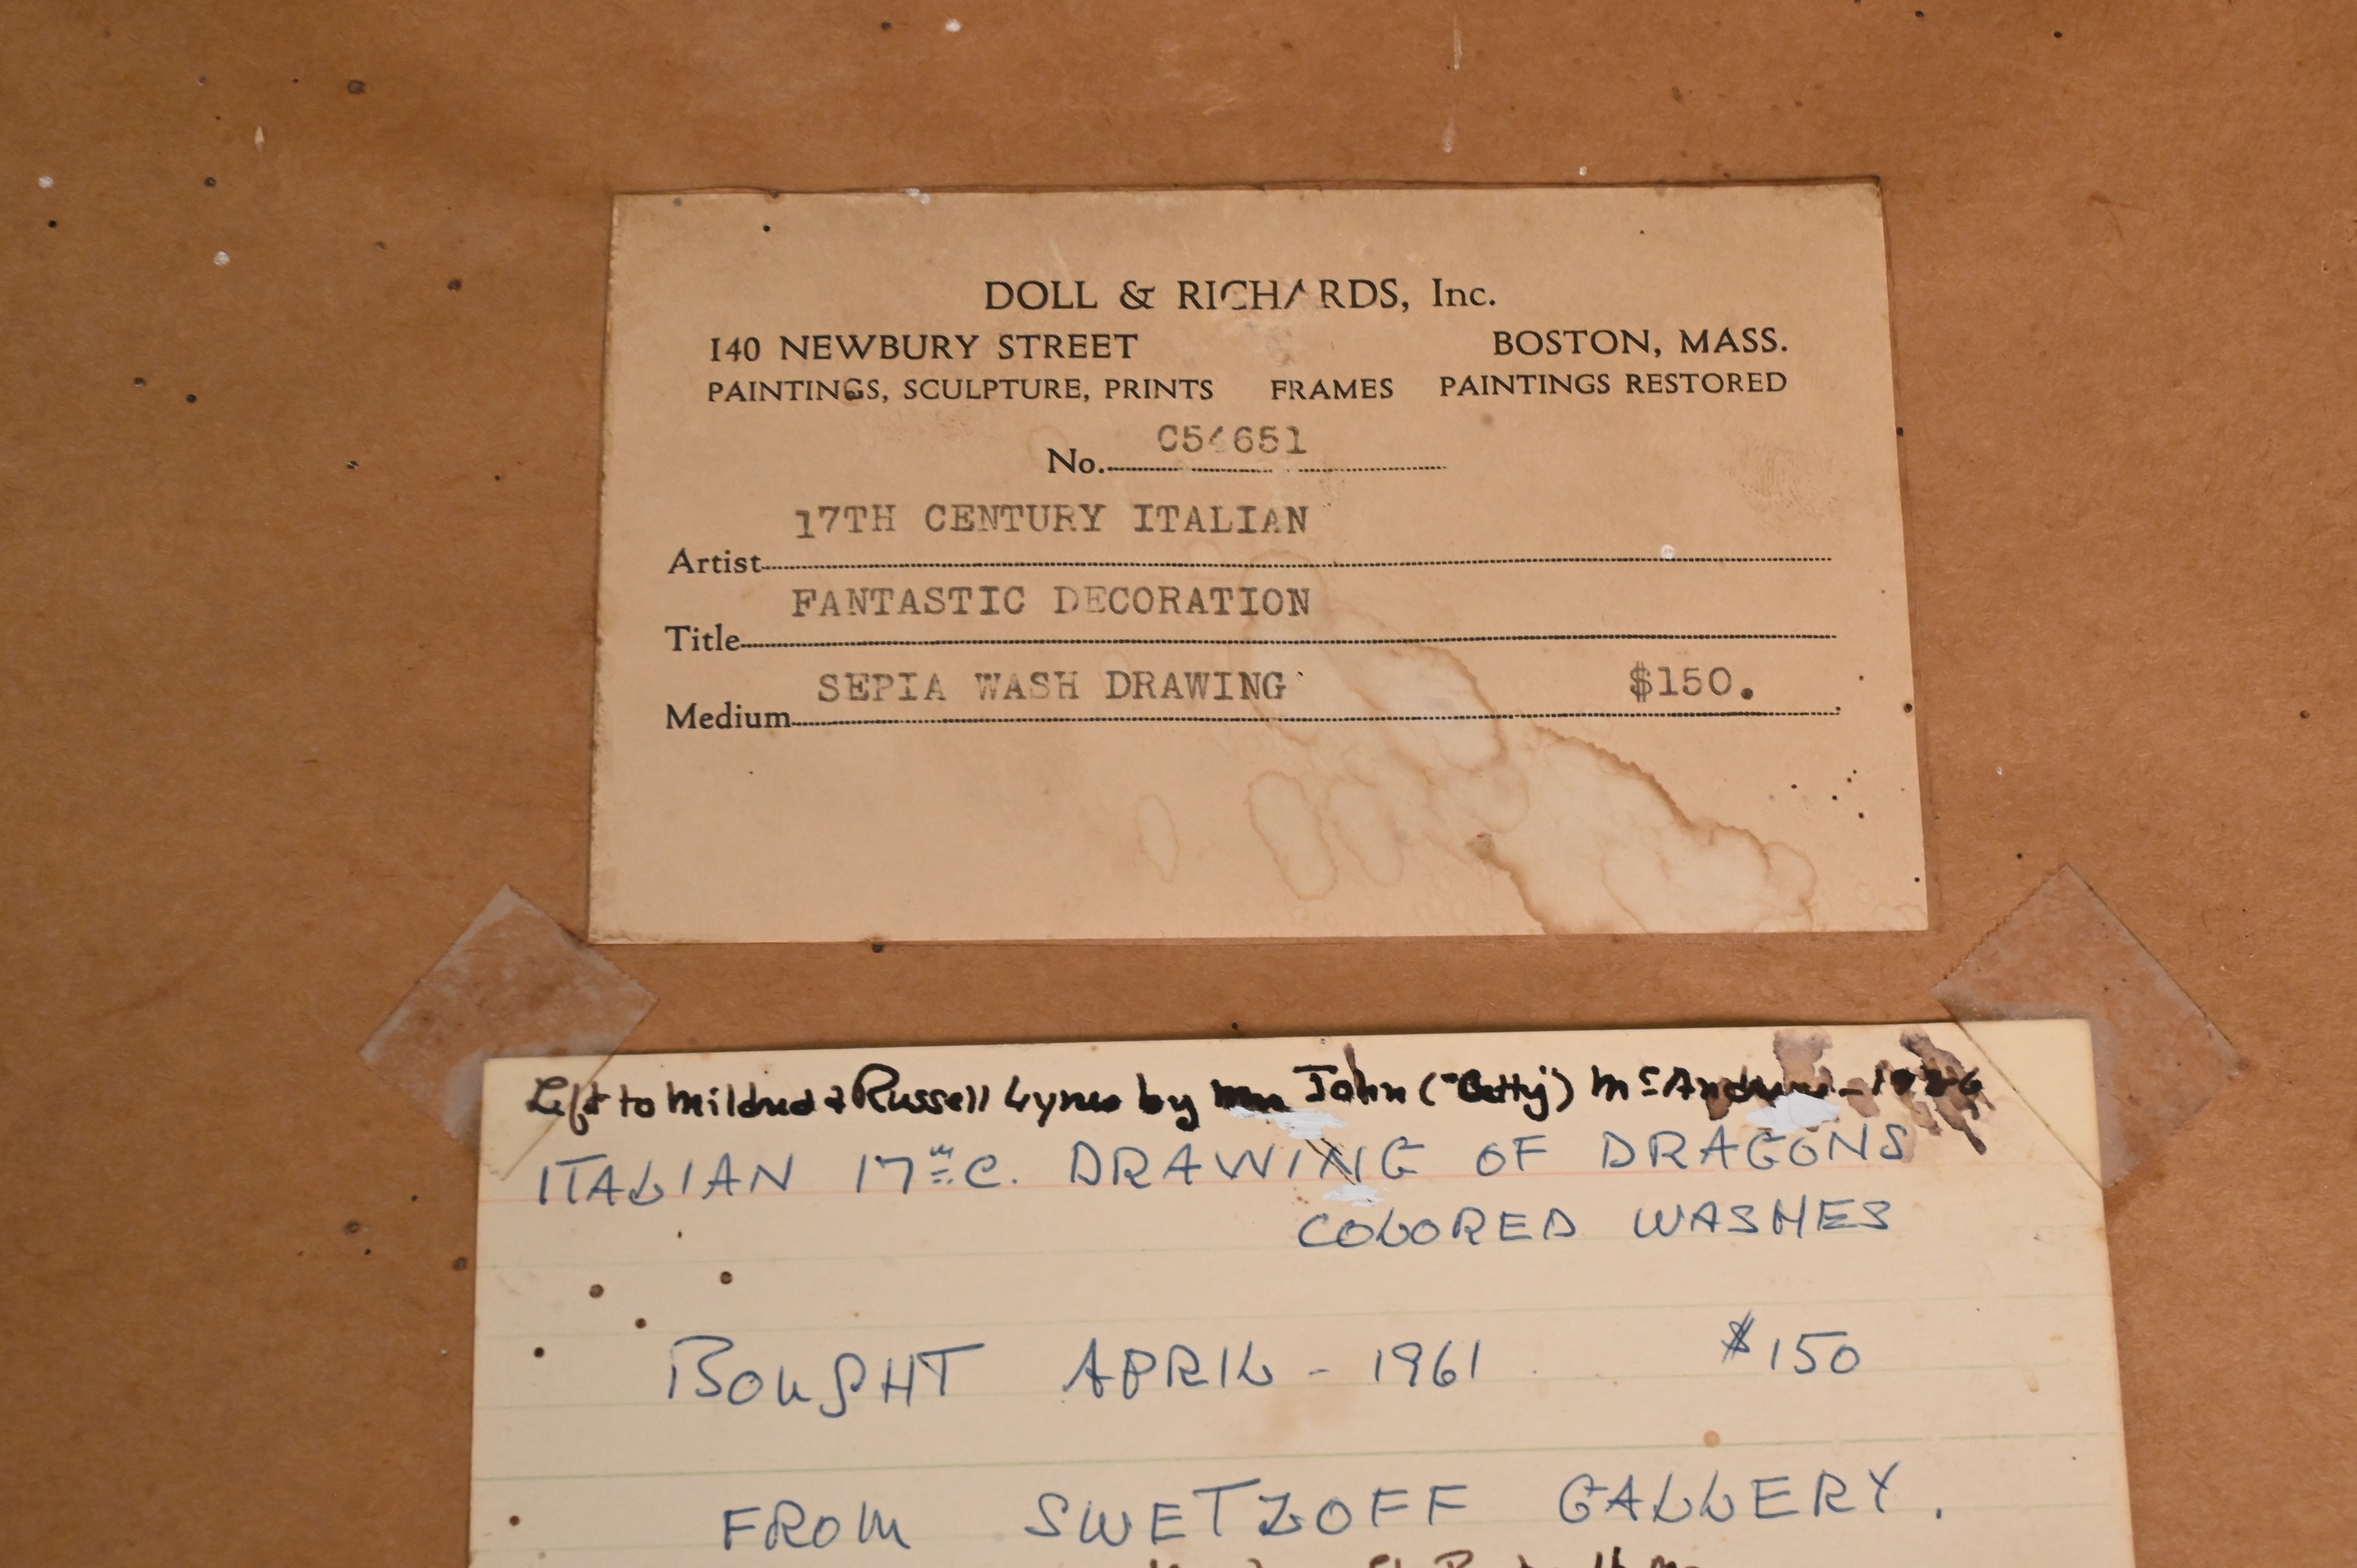 DOLL & RICHARDS, Inc.
140 NEWBURY STREET BOSTON, MASS.
PAINTINGS, SCULPTURE, PRINTS FRAMES PAINTINGS RESTORED
No. C54651
Artist 17TH CENTURY ITALIAN
Title FANTASTIC DECORATION
Medium SEPIA WASH DRAWING $150.
Left to Mildred & Russell Lynes by Mrs John ("Betty") McAndrew -
ITALIAN 17th C. DRAWING OF DRAGONS
COLORED WASHES
BOUGHT APRIL - 1961 $150
FROM SWETZOFF GALLERY.